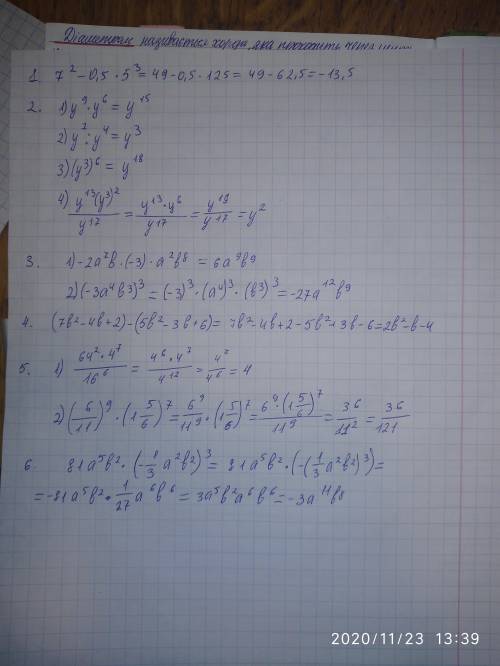 Діаметром називається хорда, яка проходить через
1. 7² - 0,5 · 5³ = 49 - 0,5 · 125 = 49 - 62,5 = -13,5
2. 1) y⁹ · y⁶ = y¹⁵
2) y⁷ : y⁴ = y³
3) (y³)⁶ = y¹⁸
4) y¹³(y³)²/y¹⁷ = y¹³ · y⁶/y¹⁷ = y¹⁹/y¹⁷ = y²
3. 1) -2a²b · (-3) · a²b⁸ = 6a⁹b⁹
2) (-3a⁴b³)³ = (-3)³ · (a⁴)³ · (b³)³ = -27a¹²b⁹
4. (7b² - 4b + 2) - (5b² - 3b + 6) = 7b² - 4b + 2 - 5b² + 3b - 6 = 2b² - b - 4
5. 1) 64² · 4⁷/16⁶ = 4⁶ · 4⁷/4¹² = 4⁷/4⁶ = 4
2) (6/11)⁹ · (1 5/6)⁷ = 6⁹/11⁹ · (1 5/6)⁷ = 6⁹ · (1 5/6)⁷/11⁹ = 36/11² = 36/121
6. 81a⁵b² · (-1/3 a²b²)³ = 81a⁵b² · (-(1/3 a²b²)³) =
= -81a⁵b² · 1/27 a⁶b⁶ = 3a⁵b²a⁶b⁶ = -3a¹¹b⁸
2020/11/23 13:39